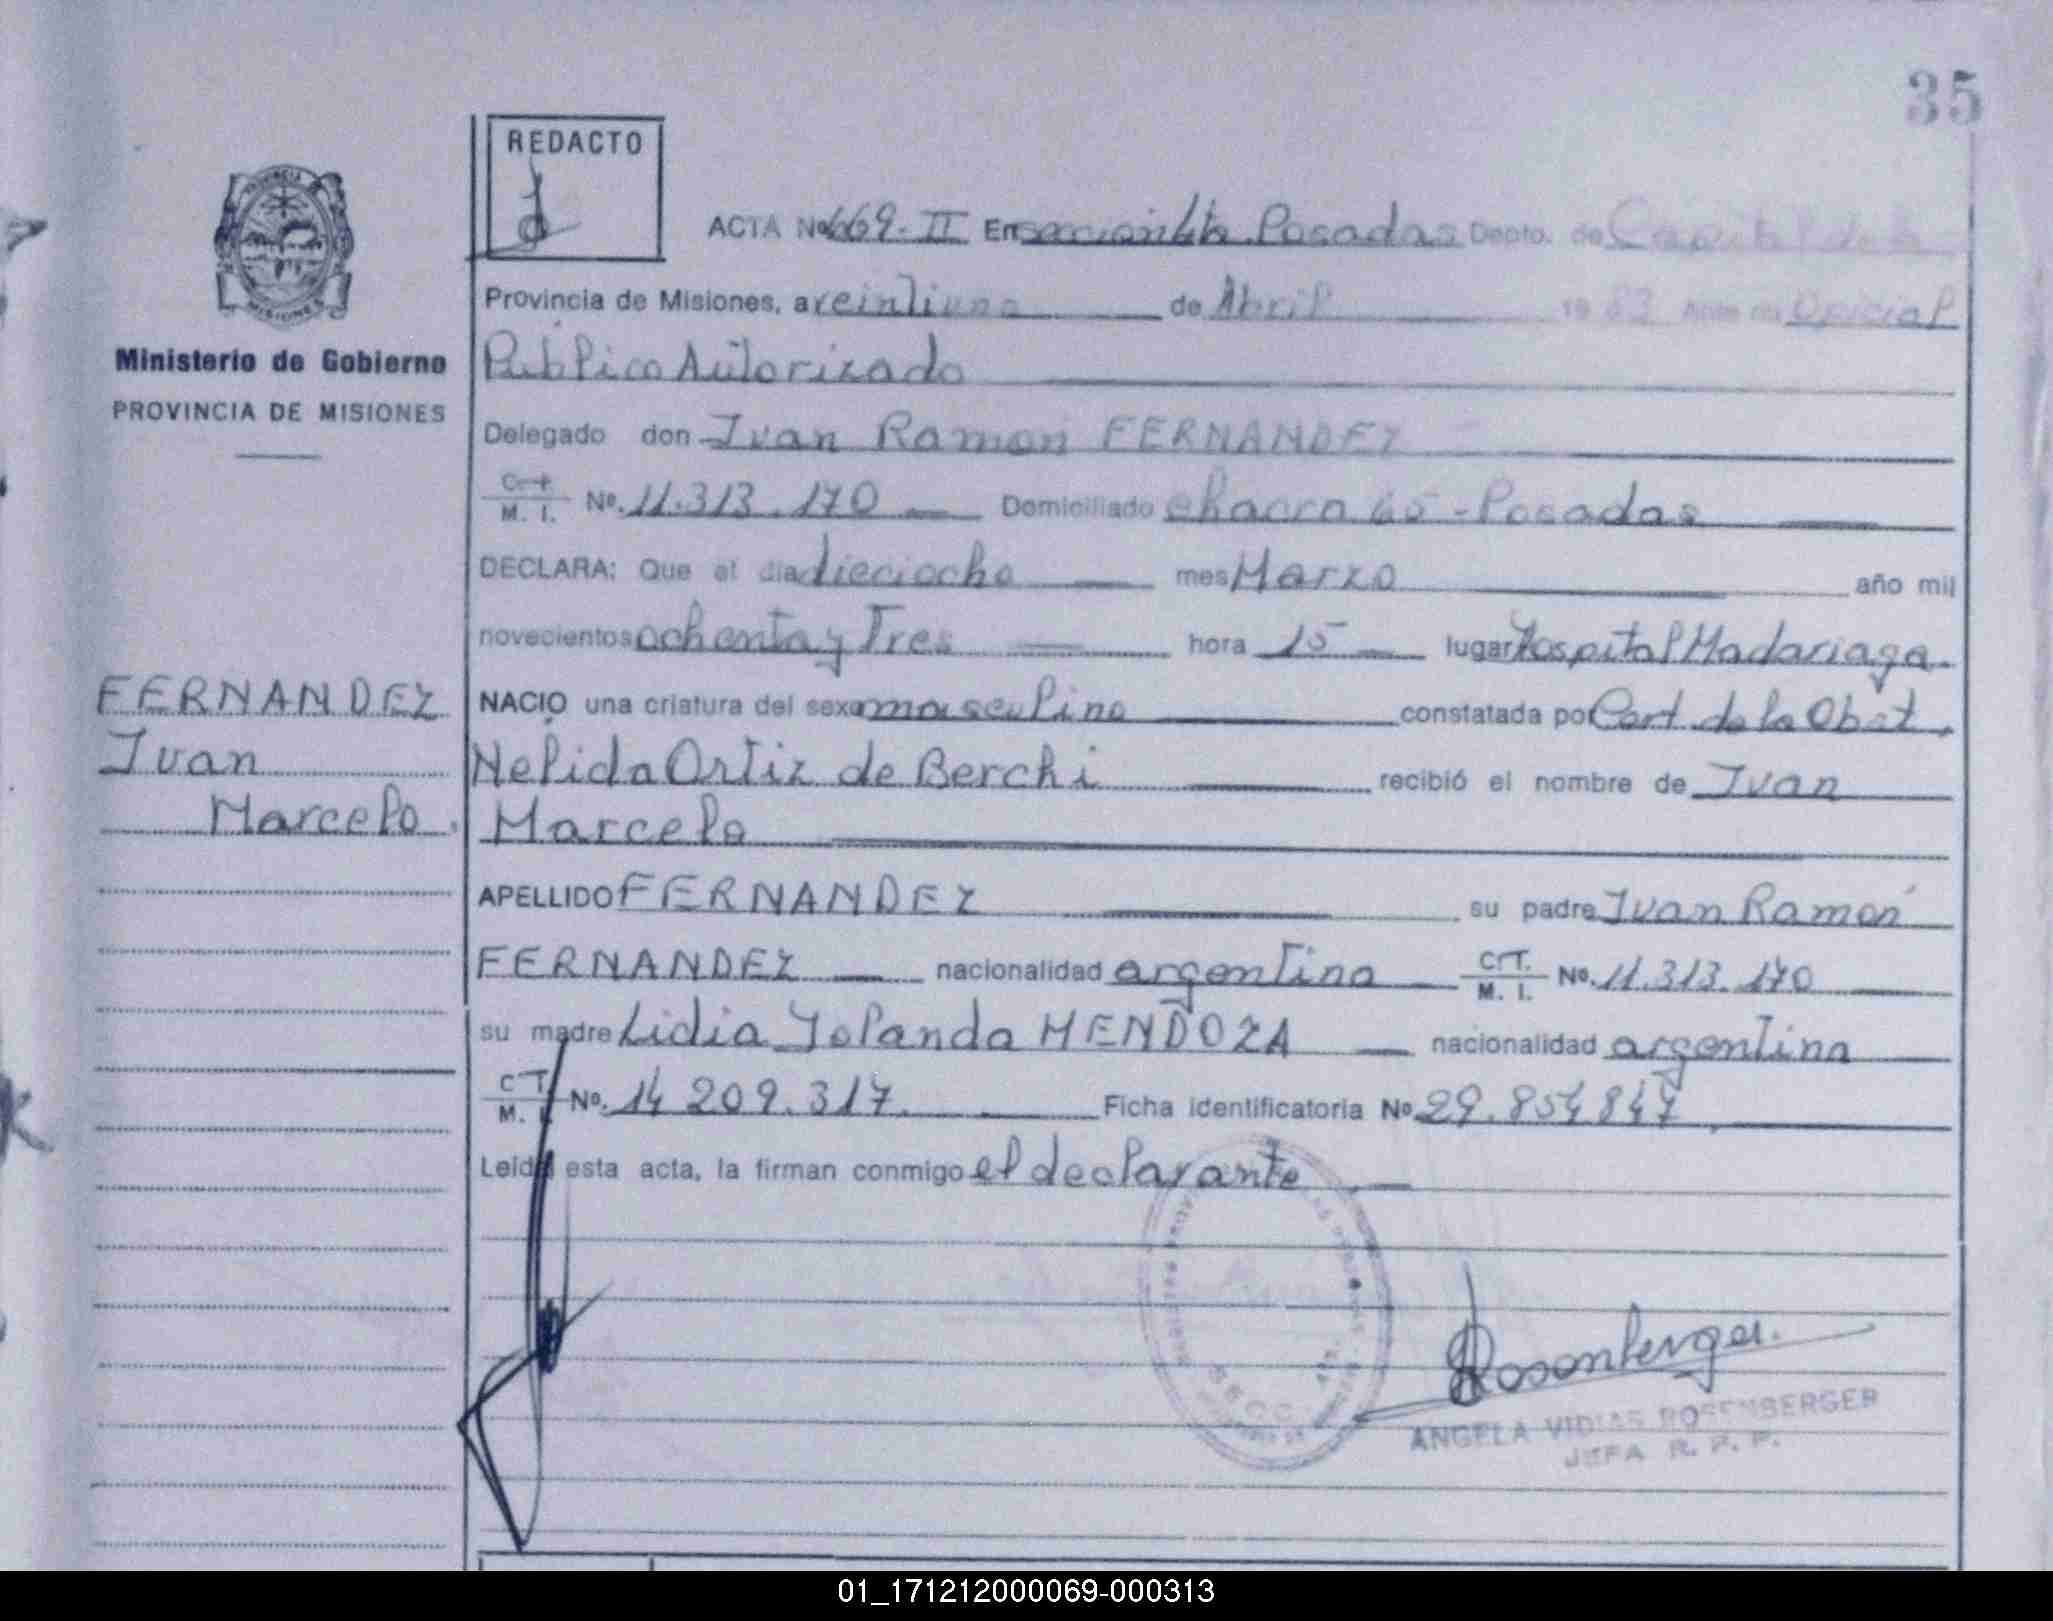 35
REDACTO
ACTA Nº 669-II En sección 4ta Posadas Depto. de Capital de la
Provincia de Misiones, a veintiuno de Abril 1983 Ante mi Oficial
Ministerio de Gobierno
Publico Autorizado
PROVINCIA DE MISIONES
Delegado don Ivan Ramon FERNANDEZ
C.I. M. I. Nº. 11.313.170 Domiciliado chacra 65 - Posadas
DECLARA: Que el día dieciocho mes Marzo año mil
novecientos ochenta y Tres hora 15 lugar Hospital Madariaga
FERNANDEZ
NACIO una criatura del sexo masculino constatada por Cert. de la Obst.
Ivan
Nelida Ortiz de Berchi recibió el nombre de Ivan
Marcelo.
Marcelo
APELLIDO FERNANDEZ su padre Ivan Ramón
FERNANDEZ nacionalidad argentina C.I. M. I. Nº. 11.313.170
su madre Lidia Yolanda MENDOZA nacionalidad argentina
C.I. M. I. Nº. 14 209.317. Ficha identificatoria Nº 29.854847
Leída esta acta, la firman conmigo el declarante
SECC.
Rosenberger.
ANGELA VIDIAS ROSENBERGER
JEFA R. P. P.
01_171212000069-000313